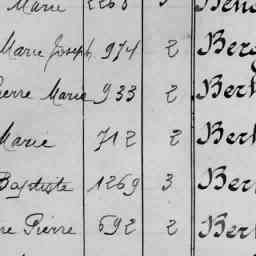 Marie 2268
Marie Joseph 974 2 Ber
Pierre Marie 933 2 Bert
Marie 712 2 Bert
Baptiste 1269 3 Ber
Pierre 692 2 Bert